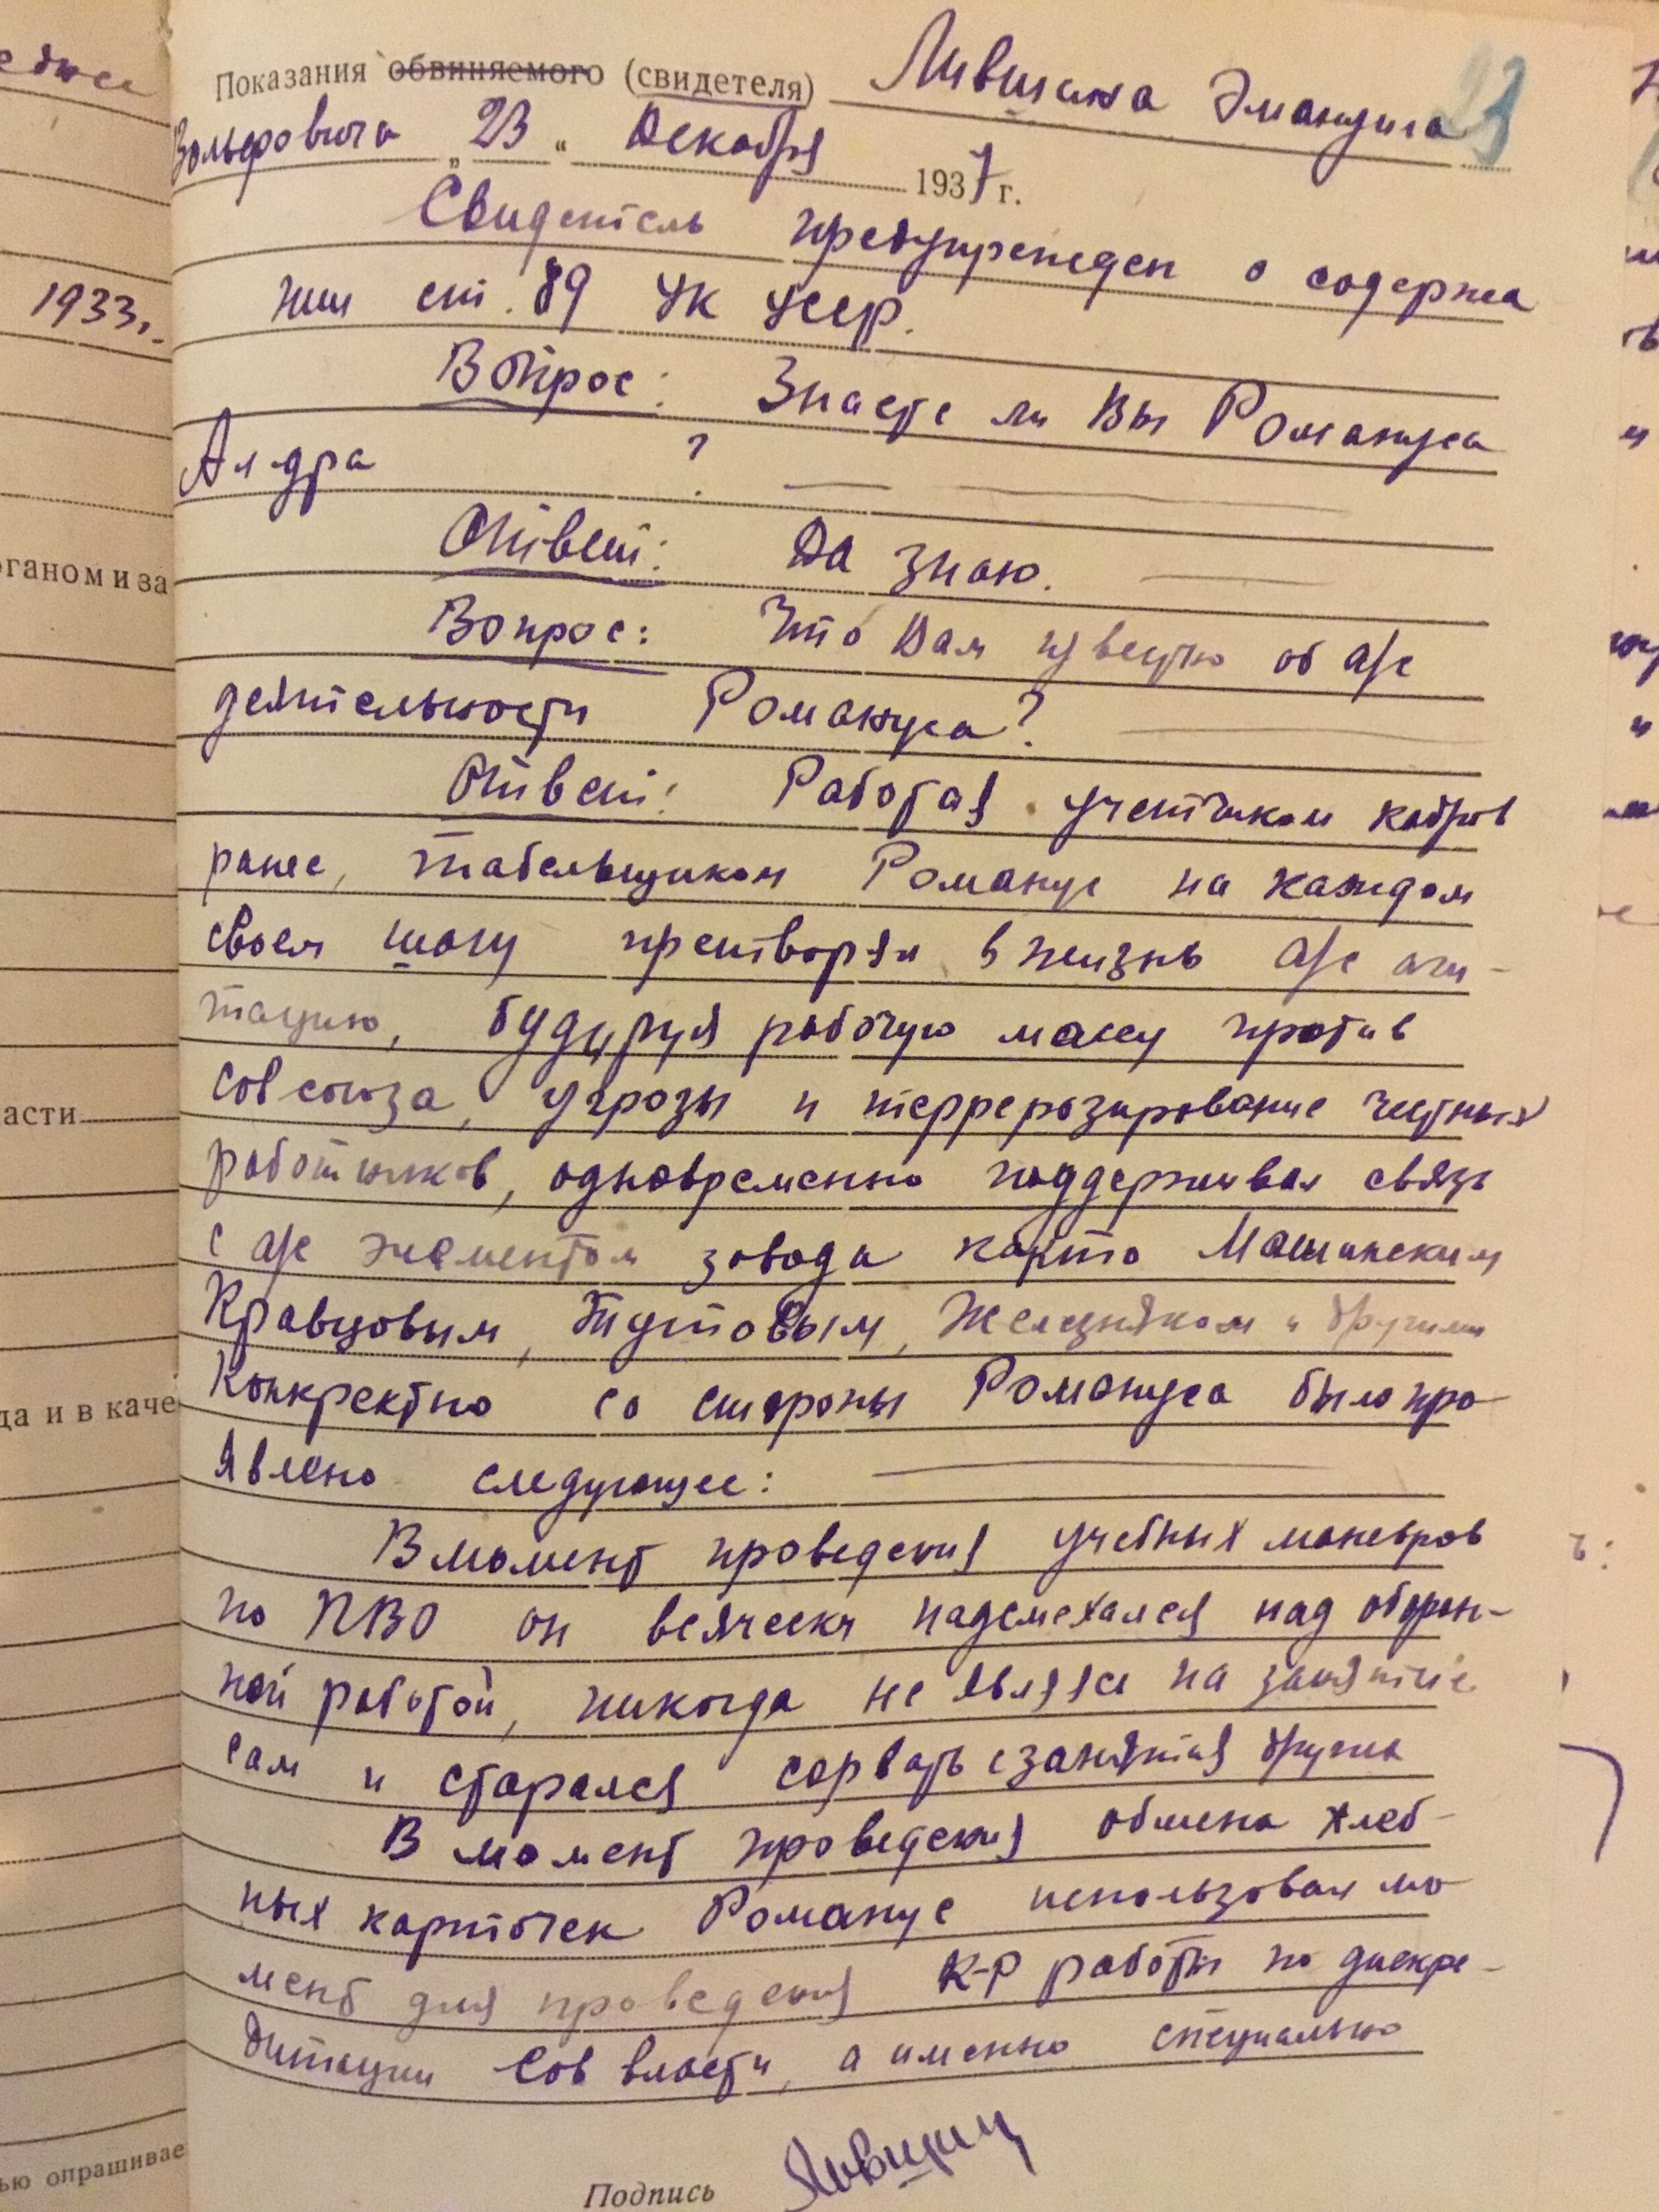 едысе
1933г.
рганом и за
асти
да и в каче
ью опрашивае
23
Показания обвиняемого (свидетеля) Лившица Эмануила
Вольфовича „23“ Декабря 1937 г.
Свидетель предупрежден о содержа
нии ст. 89 УК УССР.
Вопрос: Знаете ли Вы Романуса
Ал-дра ?
Ответ: Да знаю.
Вопрос: Что Вам известно об а/с
деятельности Романуса?
Ответ: Работая учетчиком кадров
ранее, табельщиком Романус на каждом
своем шагу претворял в жизнь а/с аги-
тацию, будируя рабочую массу против
совсоюза, угрозы и террерозирование честных
работников, одновременно поддерживал связь
с а/с элементом завода как-то Машинским
Кравцовым, Тутовым, Железняком и другими
Конкректно со стороны Романуса было про-
явлено следующее:
В момент проведения учебных маневров
по ПВО он всячески надсмехался над оборон-
ной работой, никогда не являяся на занятие
сам и старался сорвать с занятия других
В момент проведения обмена хлеб-
ных карточек Романус использовал мо-
мент для проведения К-Р работы по дискре-
дитации Сов власти, а именно специально
Подпись Лившиц